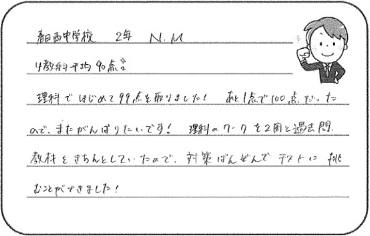 西中学校 2年 N.M
4教科平均90点台
理科ではじめて99点を取りました! あと1点で100点だった
ので、またがんばりたいです! 理科のワークを2周と過去問、
教材をきちんとしていたので、対策ばんぜんでテストに挑
むことができました!